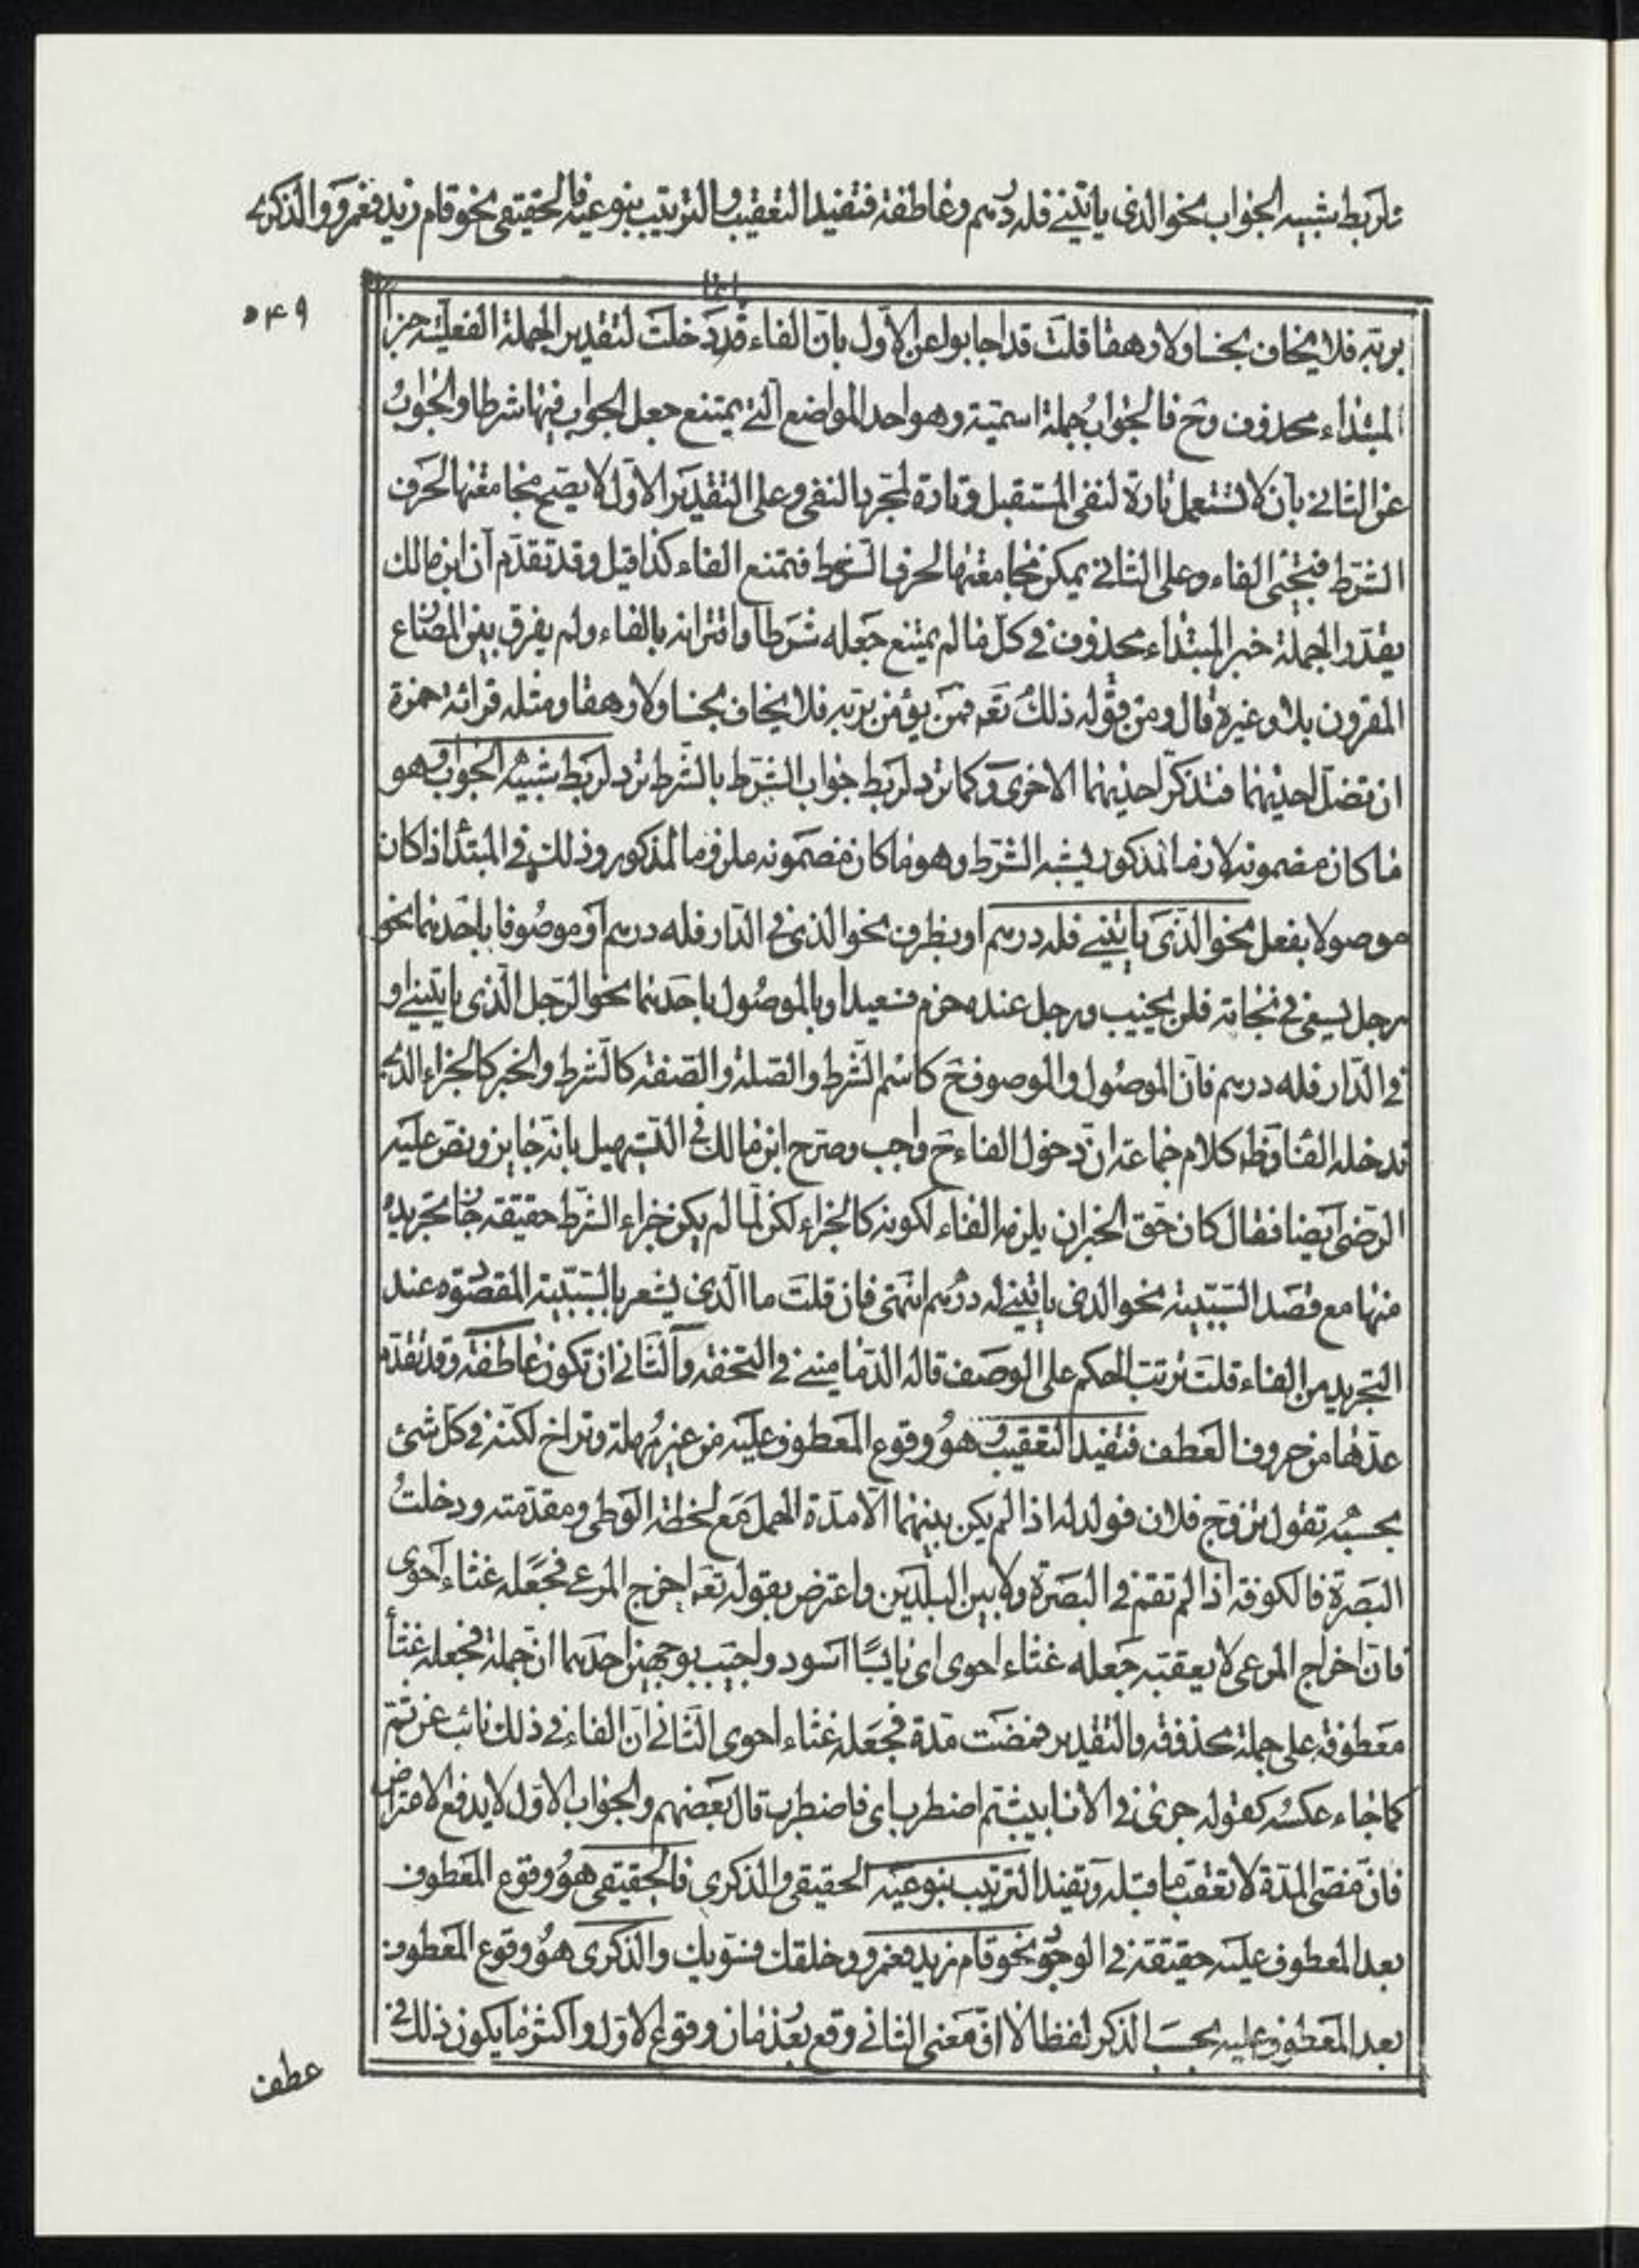 ولربط شبيه الجواب نحو الذى ياتينى فله درهم وعاطفة فتفيد التعقيب والترتيب بنوعيه فالحقيقى نحو قام زيد فعمرو والذكرى
٥٤٩
بربه فلا يخاف بخسا ولا رهقا قلت قد اجابوا عن الاول بان الفاء قد دخلت لتقدير الجملة الفعلية خبرا
المبتداء محذوف وح فالجواب جملة اسمية وهو احد المواضع التى يمتنع جعل الجواب فيها شرطا والجواب
عن الثانى بان لا تستعمل تارة لنفى المستقبل وتارة لمجرد النفى وعلى التقدير الاول لا يصح مجامعتها لحرف
الشرط فتجئى الفاء وعلى الثانى يمكن مجامعتها لحرف الشرط فتمتنع الفاء كذا قيل وقد تقدم ان ابن مالك
يقدر الجملة خبر المبتداء محذوف فى كل ما لم يمتنع جعله شرطا واقترانه بالفاء ولم يفرق بين المضارع
المقرون بلا وغيره قال ومن قوله ذلك تع فمن يؤمن بربه فلا يخاف بخسا ولا رهقا ومثله قرائة حمزة
ان تضل احديهما فتذكر احديهما الاخرى وكما ترد لربط جواب الشرط بالشرط ترد لربط شبيه الجواب وهو
ما كان مضمونه لازما لمذكور يشبه الشرط وهو ما كان مضمونه ملزوما لمذكور وذلك فى المبتدا اذا كان
موصولا بفعل نحو الذى ياتينى فله درهم او بظرف نحو الذى فى الدار فله درهم او موصوفا باحدهما نحو
رجل يسعى فى نجاته فلن يخيب ورجل عنده حزم فسعيد او بالموصول باحدهما نحو الرجل الذى ياتينى او
فى الدار فله درهم فان الموصول والموصوف ح كاسم الشرط والصلة والصفة كالشرط والخبر كالجزاء الذى
تدخله الفا وظ كلام جماعة ان دخول الفاء ح واجب وصرح ابن مالك فى التسهيل بانه جايز ونص عليه
الرضى ايضا فقال كان حق الخبر ان يلزمه الفاء لكونه كالجزاء لكن لما لم يكن جزاء الشرط حقيقة جاز تجريده
منها مع قصد السببية نحو الذى ياتينى له درهم انتهى فان قلت ما الذى يشعر بالسببية المقصودة عند
التجريد من الفاء قلت ترتب الحكم على الوصف قاله الدمامينى فى التحفة والثانى ان تكون عاطفة وقد تقدم
عدها من حروف العطف فتفيد التعقيب وهو وقوع المعطوف عليه من غير مهلة وتراخ لكنه فى كل شئ
بحسبه تقول تزوج فلان فولد له اذا لم يكن بينهما الا مدة الحمل مع لحظة الوطى ومقدمته ودخلت
البصرة فالكوفة اذا لم تقم فى البصرة ولا بين البلدين واعترض بقوله تع اخرج المرعى فجعله غثاء احوى
فان اخراج المرعى لا يعقبه جعله غثاء احوى اى يابسا اسود واجيب بوجهين احدهما ان جملة فجعله غثأ
معطوفة على جملة محذوفة والتقدير فمضت مدة فجعله غثاء احوى الثانى ان الفاء فى ذلك نائب عن ثم
كما جاء عكسه كقوله جرى فى الانابيب ثم اضطرب اى فاضطرب قال بعضهم والجواب الاول لا يدفع الاعتراض
فان مضى المدة لا تعقب ما قبله وتفيد الترتيب بنوعيه الحقيقى والذكرى فالحقيقى هو وقوع المعطوف
بعد المعطوف عليه حقيقة فى الوجود نحو قام زيد فعمرو وخلقك فسويك والذكرى هو وقوع المعطوف
بعد المعطوف عليه بحسب الذكر لفظا لا ان معنى الثانى وقع بعد زمان وقوع الاول واكثر ما يكون ذلك فى
عطف